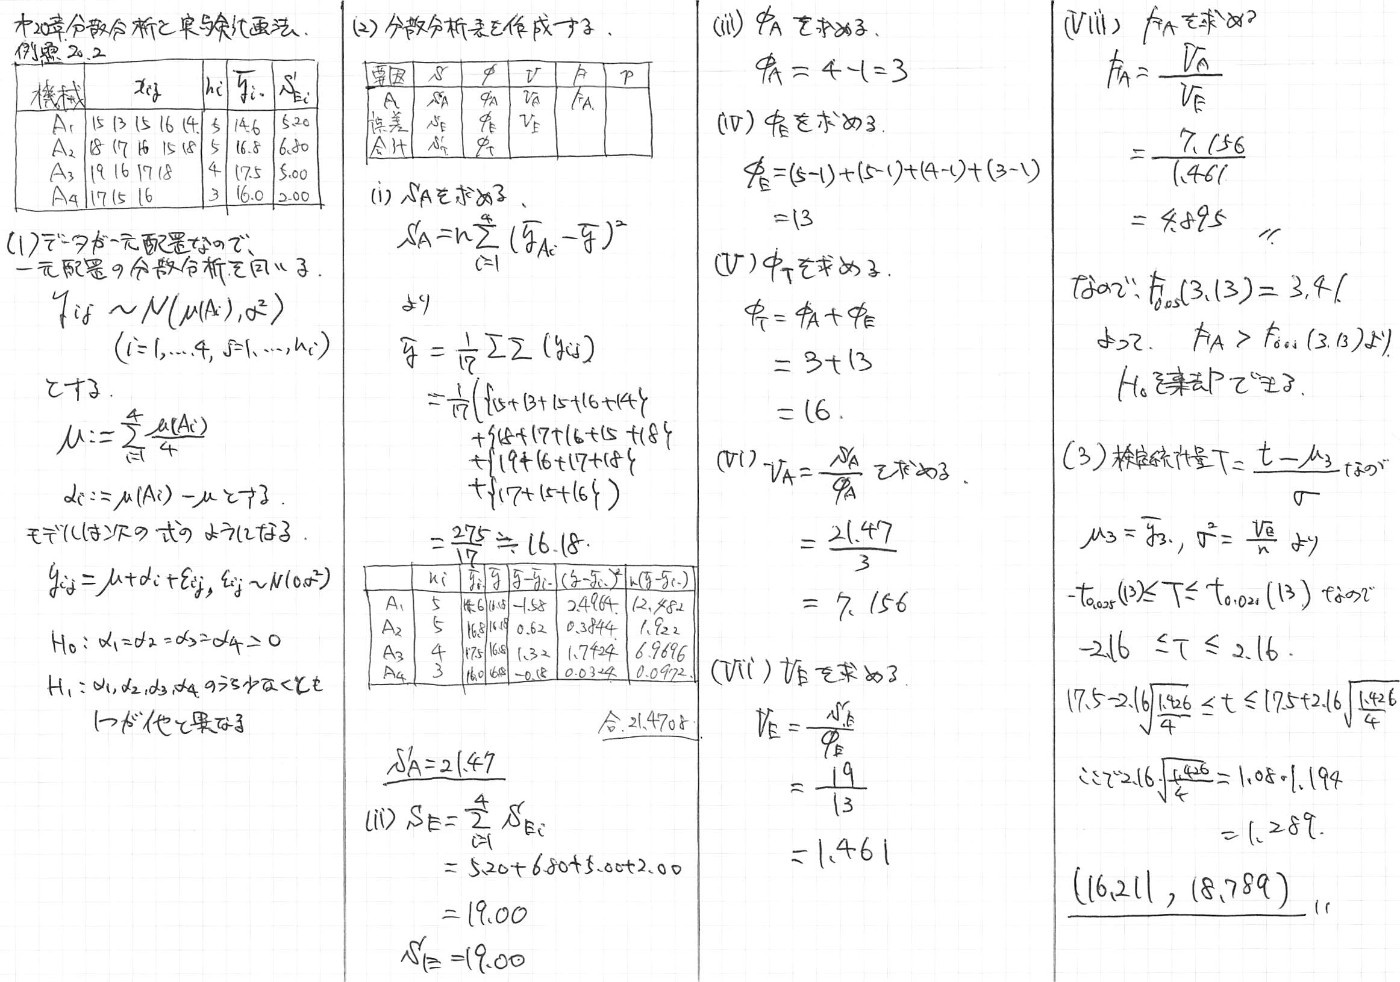 第20章分散分析と実験計画法.
例題20.2
機械 x_{ij} n_i ȳ_{i.} S_{Ei}
A₁ 15 13 15 16 14 5 14.6 5.20
A₂ 18 17 16 15 18 5 16.8 6.80
A₃ 19 16 17 18 4 17.5 5.00
A₄ 17 15 16 3 16.0 2.00
(1)データが一元配置なので、
一元配置の分散分析を用いる.
y_{ij} ~ N(μ(A_i), σ²)
(i=1,…,4, j=1,…,n_i)
とする.
μ := Σ_{i=1}^{4} μ(A_i)/4
α_i := μ(A_i) − μ とする.
モデルは次の式のようになる.
y_{ij} = μ+α_i+ε_{ij}, ε_{ij} ~ N(0,σ²)
H₀ : α₁=α₂=α₃=α₄=0
H₁ : α₁,α₂,α₃,α₄のうち少なくとも
1つが他と異なる
(2) 分散分析表を作成する.
要因 S φ V F P
A S_A φ_A V_A F_A
誤差 S_E φ_E V_E
合計 S_T φ_T
(i) S_Aを求める、
S_A = n Σ_{i=1}^{4} (ȳ_{Ai} − ȳ)²
より
ȳ = 1/17 ΣΣ (y_{ij})
= 1/17 ({15+13+15+16+14}
+{18+17+16+15+18}
+{19+16+17+18}
+{17+15+16})
= 275/17 ≒ 16.18.
n_i ȳ_{i.} ȳ ȳ−ȳ_{i.} (ȳ−ȳ_{i.})² n(ȳ−ȳ_{i.})
A₁ 5 14.6 16.18 −1.58 2.4964 12.482
A₂ 5 16.8 16.18 0.62 0.3844 1.922
A₃ 4 17.5 16.18 1.32 1.7424 6.9696
A₄ 3 16.0 16.18 −0.18 0.0324 0.0972
合. 21.4708
S_A = 21.47
(ii) S_E = Σ_{i=1}^{4} S_{Ei}
= 5.20+6.80+5.00+2.00
= 19.00
S_E = 19.00
(iii) φ_A を求める.
φ_A = 4−1=3
(iv) φ_Eを求める.
φ_E = (5−1)+(5−1)+(4−1)+(3−1)
=13
(V) φ_Tを求める.
φ_T = φ_A + φ_E
= 3+13
= 16.
(Vi) V_A = S_A/φ_A で求める.
= 21.47/3
= 7.156
(Vii) V_E を求める.
V_E = S_E/φ_E
= 19/13
= 1.461
(Viii) F_A を求める
F_A = V_A/V_E
= 7.156/1.461
= 4.895 〃
なので、F_{0.05}(3,13) = 3.41
よって. F_A > F_{0.05}(3,13)より,
H₀を棄却できる.
(3) 検定統計量T = (t − μ₃)/σ なので
μ₃ = ȳ₃., σ² = V_E/n より
−t_{0.025}(13) ≤ T ≤ t_{0.025}(13) なので
−2.16 ≤ T ≤ 2.16.
17.5−2.16√(1.426/4) ≤ t ≤ 17.5+2.16√(1.426/4)
ここで2.16·√(1.426/4) = 1.08・1.194
= 1.289.
(16.211 , 18.789) 〃